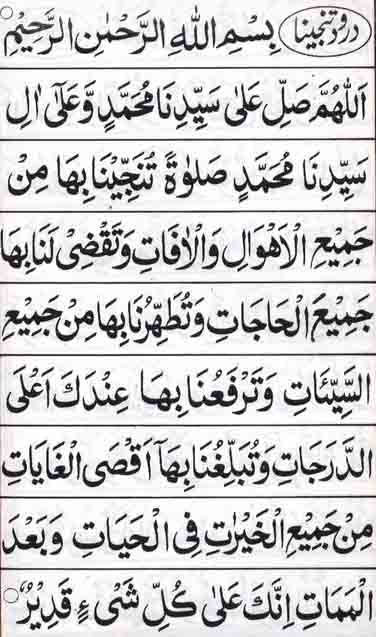 درود تنجینا بِسْمِ اللهِ الرَّحْمٰنِ الرَّحِيْمِ
اَللّٰهُمَّ صَلِّ عَلٰى سَيِّدِنَا مُحَمَّدٍ وَّعَلٰٓى اٰلِ
سَيِّدِنَا مُحَمَّدٍ صَلٰوةً تُنَجِّيْنَا بِهَا مِنْ
جَمِيْعِ الْاَهْوَالِ وَالْاٰفَاتِ وَتَقْضِيْ لَنَا بِهَا
جَمِيْعَ الْحَاجَاتِ وَتُطَهِّرُنَا بِهَا مِنْ جَمِيْعِ
السَّيِّئَاتِ وَتَرْفَعُنَا بِهَا عِنْدَكَ اَعْلَى
الدَّرَجَاتِ وَتُبَلِّغُنَا بِهَآ اَقْصَى الْغَايَاتِ
مِنْ جَمِيْعِ الْخَيْرٰتِ فِى الْحَيَاتِ وَبَعْدَ
الْمَمَاتِ اِنَّكَ عَلٰى كُلِّ شَىْءٍ قَدِيْرٌ